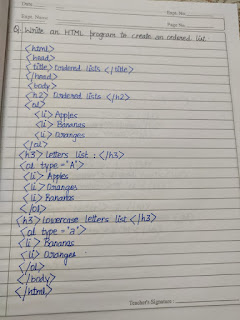 Date
Expt. Name
Page No.
Page No.
Q. Write an HTML program to create an ordered list.
<html>
<head>
<title> Ordered lists </title>
</head>
<body>
<h2> Ordered lists </h2>
<ol>
<li> Apples
<li> Bananas
<li> Oranges
</ol>
<h3> letters list : </h3>
<ol type = "A">
<li> Apples
<li> Oranges
<li> Bananas
</ol>
<h3> lowercase letters list </h3>
<ol type = "a">
<li> Bananas
<li> Oranges
</ol>
</body>
</html>
Teacher's Signature :